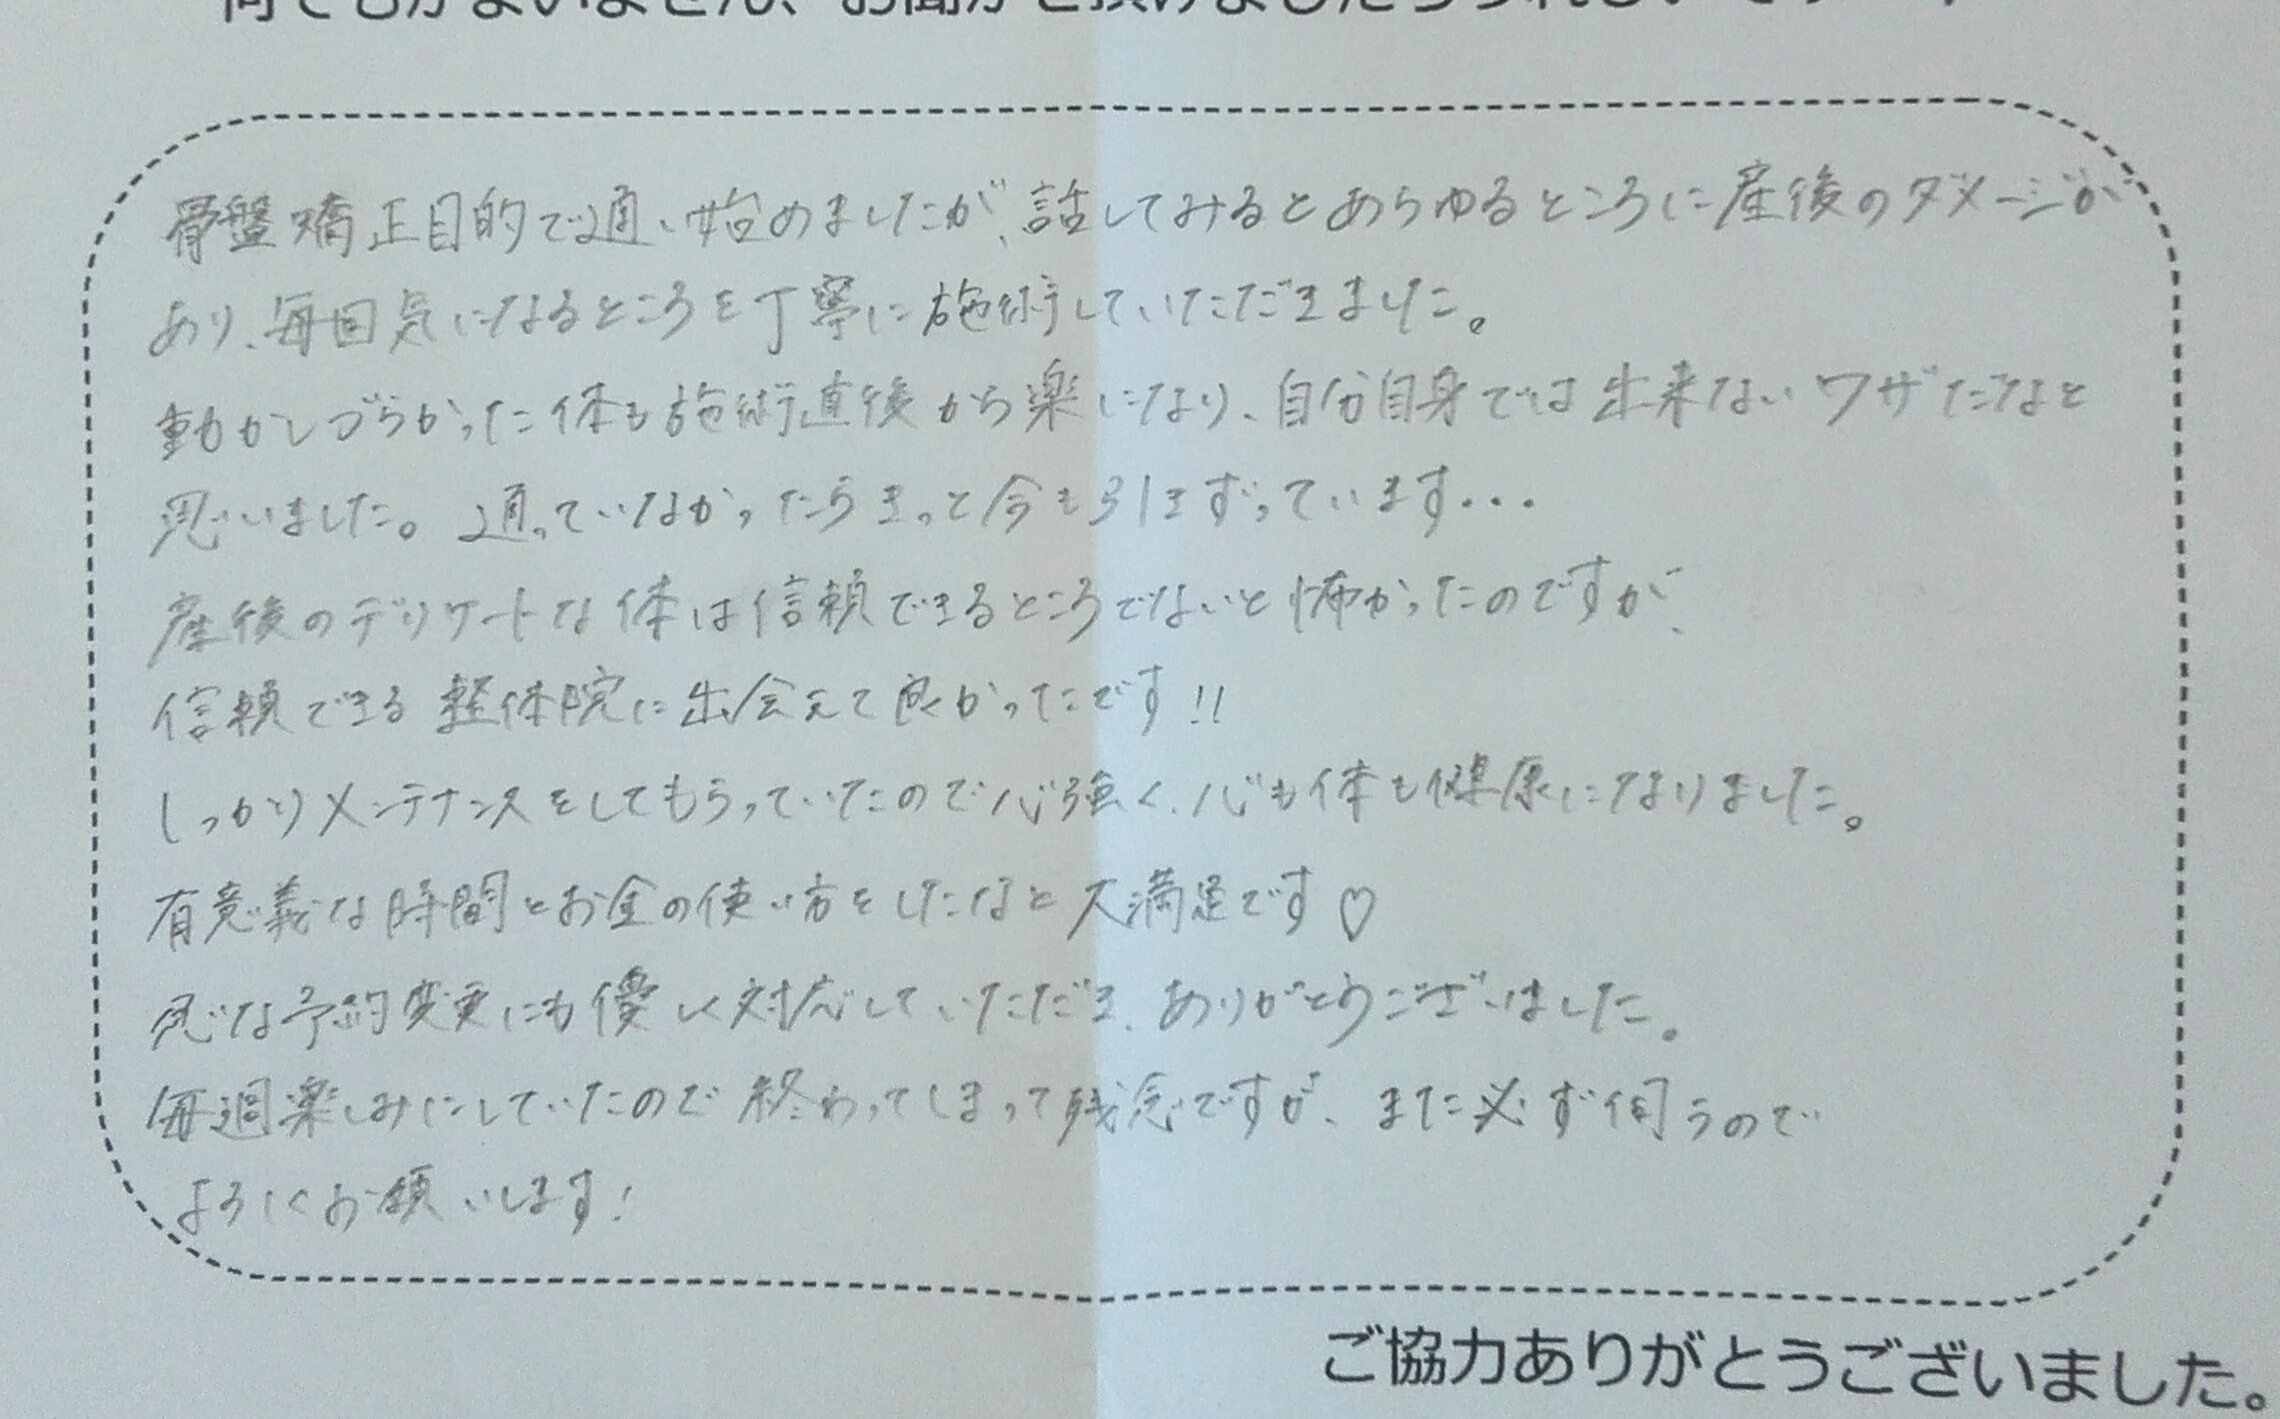 何でもかまいません、お聞かせ頂けましたらうれしいです
骨盤矯正目的で通い始めましたが、話してみるとあらゆるところに産後のダメージが
あり、毎回気になるところを丁寧に施術していただきました。
動かしづらかった体も施術直後から楽になり、自分自身では出来ないワザだなと
思いました。通っていなかったらきっと今も引きずっています...
産後のデリケートな体は信頼できるところでないと怖かったのですが、
信頼できる整体院に出会えて良かったです!!
しっかりメンテナンスをしてもらっていたので心強く、心も体も健康になりました。
有意義な時間とお金の使い方をしたなと大満足です♡
急な予約変更にも優しく対応していただき、ありがとうございました。
毎週楽しみにしていたので終わってしまって残念ですが、また必ず伺うので
よろしくお願いします!
ご協力ありがとうございました。